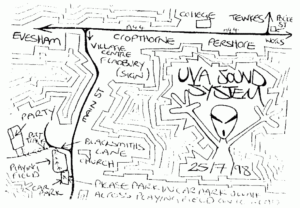 COLLEGE
TEWKES
A44
A44
EVESHAM
CROPTHORNE
PERSHORE
VILLAGE
CENTRE
FLADBURY
(SIGN)
MAIN ST
UVA SOUND
SYSTEM
PARTY
BLACKSMITHS
LANE
CHURCH
PLAYING
FIELD
CAR
PARK
25/7/98
PLEASE PARK IN CAR PARK
ACROSS PLAYING FIELD